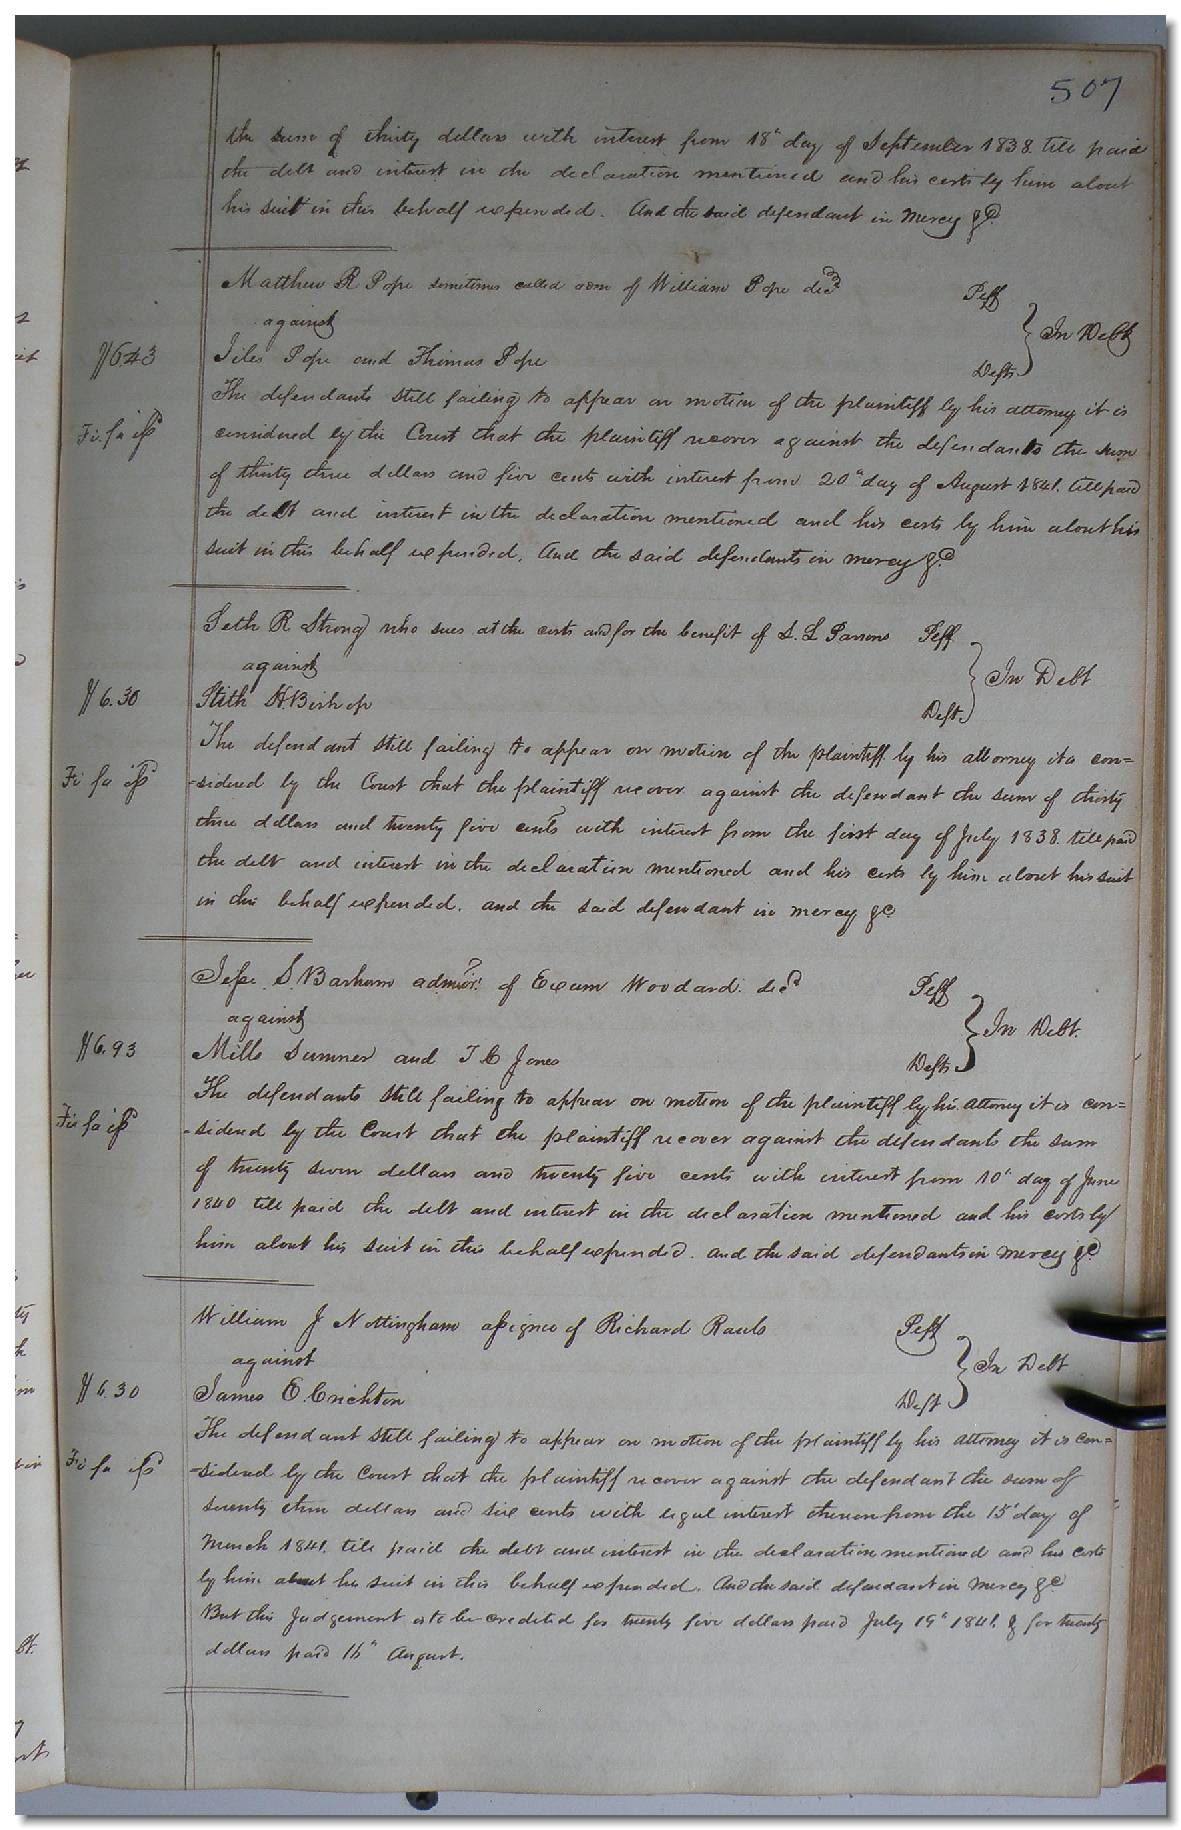 507
the sum of thirty dollars with interest from 18" day of September 1838. till paid
the debt and interest in the declaration mentioned and his costs by him about
his suit in this behalf expended. And the said defendant in mercy &c
Matthew R Pope sometimes called son of William Pope decd Plff
against In Debt
$6.43 Giles Pope and Thomas Pope Defts
The defendants still failing to appear on motion of the plaintiff by his attorney it is
Fi. fa iss considered by the Court that the plaintiff recover against the defendants the sum
of thirty three dollars and five cents with interest from 20" day of August 1841. till paid
the debt and interest in the declaration mentioned and his costs by him about his
suit in this behalf expended. And the said defendants in mercy &c
Seth R Strong who sues at the costs and for the benefit of S. L Parsons Plff
against In Debt
$6.30 Stith H. Bishop Deft.
The defendant still failing to appear on motion of the plaintiff by his attorney it is con=
Fi fa iss -sidered by the Court that the plaintiff recover against the defendant the sum of thirty
three dollars and twenty five cents with interest from the first day of July 1838. till paid
the debt and interest in the declaration mentioned and his costs by him about his suit
in this behalf expended. and the said defendant in mercy &c
Jesse S Barham admor. of Exum Woodard. decd Plff
against In Debt.
$6.93 Mills Sumner and T C Jones Defts
The defendants still failing to appear on motion of the plaintiff by his attorney it is con=
Fi fa iss -sidered by the Court that the plaintiff recover against the defendants the sum
of twenty seven dollars and twenty five cents with interest from 10" day of June
1840 till paid the debt and interest in the declaration mentioned and his costs by
him about his suit in this behalf expended. and the said defendants in mercy &c
William J Nottingham assignee of Richard Rawls Plff
against In Debt
$6.30 James E. Crichton Deft
The defendant still failing to appear on motion of the plaintiff by his attorney it is con=
Fi fa iss -sidered by the Court that the plaintiff recover against the defendant the sum of
seventy three dollars and six cents with legal interest thereon from the 15" day of
March 1841. till paid the debt and interest in the declaration mentioned and his costs
by him about his suit in this behalf expended. And the said defendant in mercy &c
But this Judgement is to be credited for twenty five dollars paid July 19" 1841. & for twenty
dollars paid 16" August.